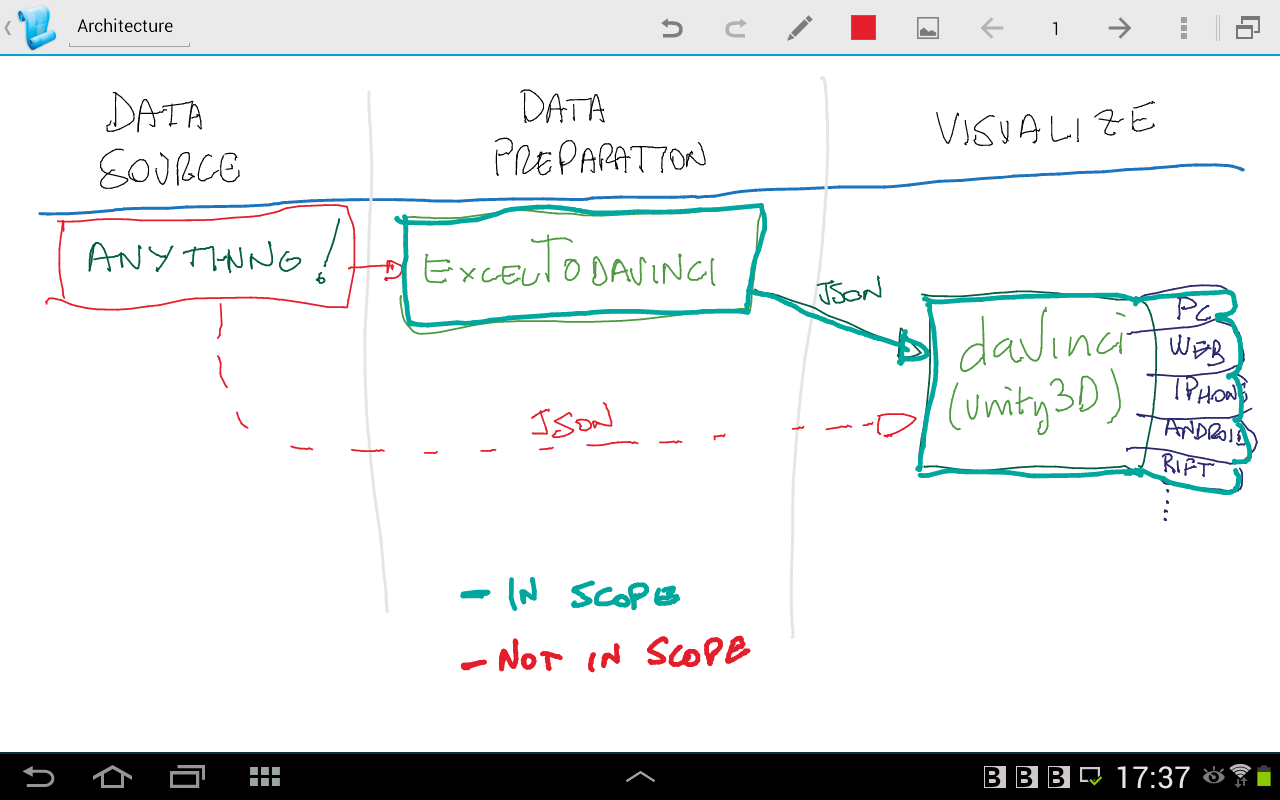 Architecture
1
DATA
SOURCE
DATA
PREPARATION
VISUALIZE
ANYTHING!
EXCELTODAVINCI
JSON
daVinci
(unity3D)
PC
WEB
IPHONE
ANDROID
RIFT
JSON
- IN SCOPE
- NOT IN SCOPE
B B B 17:37